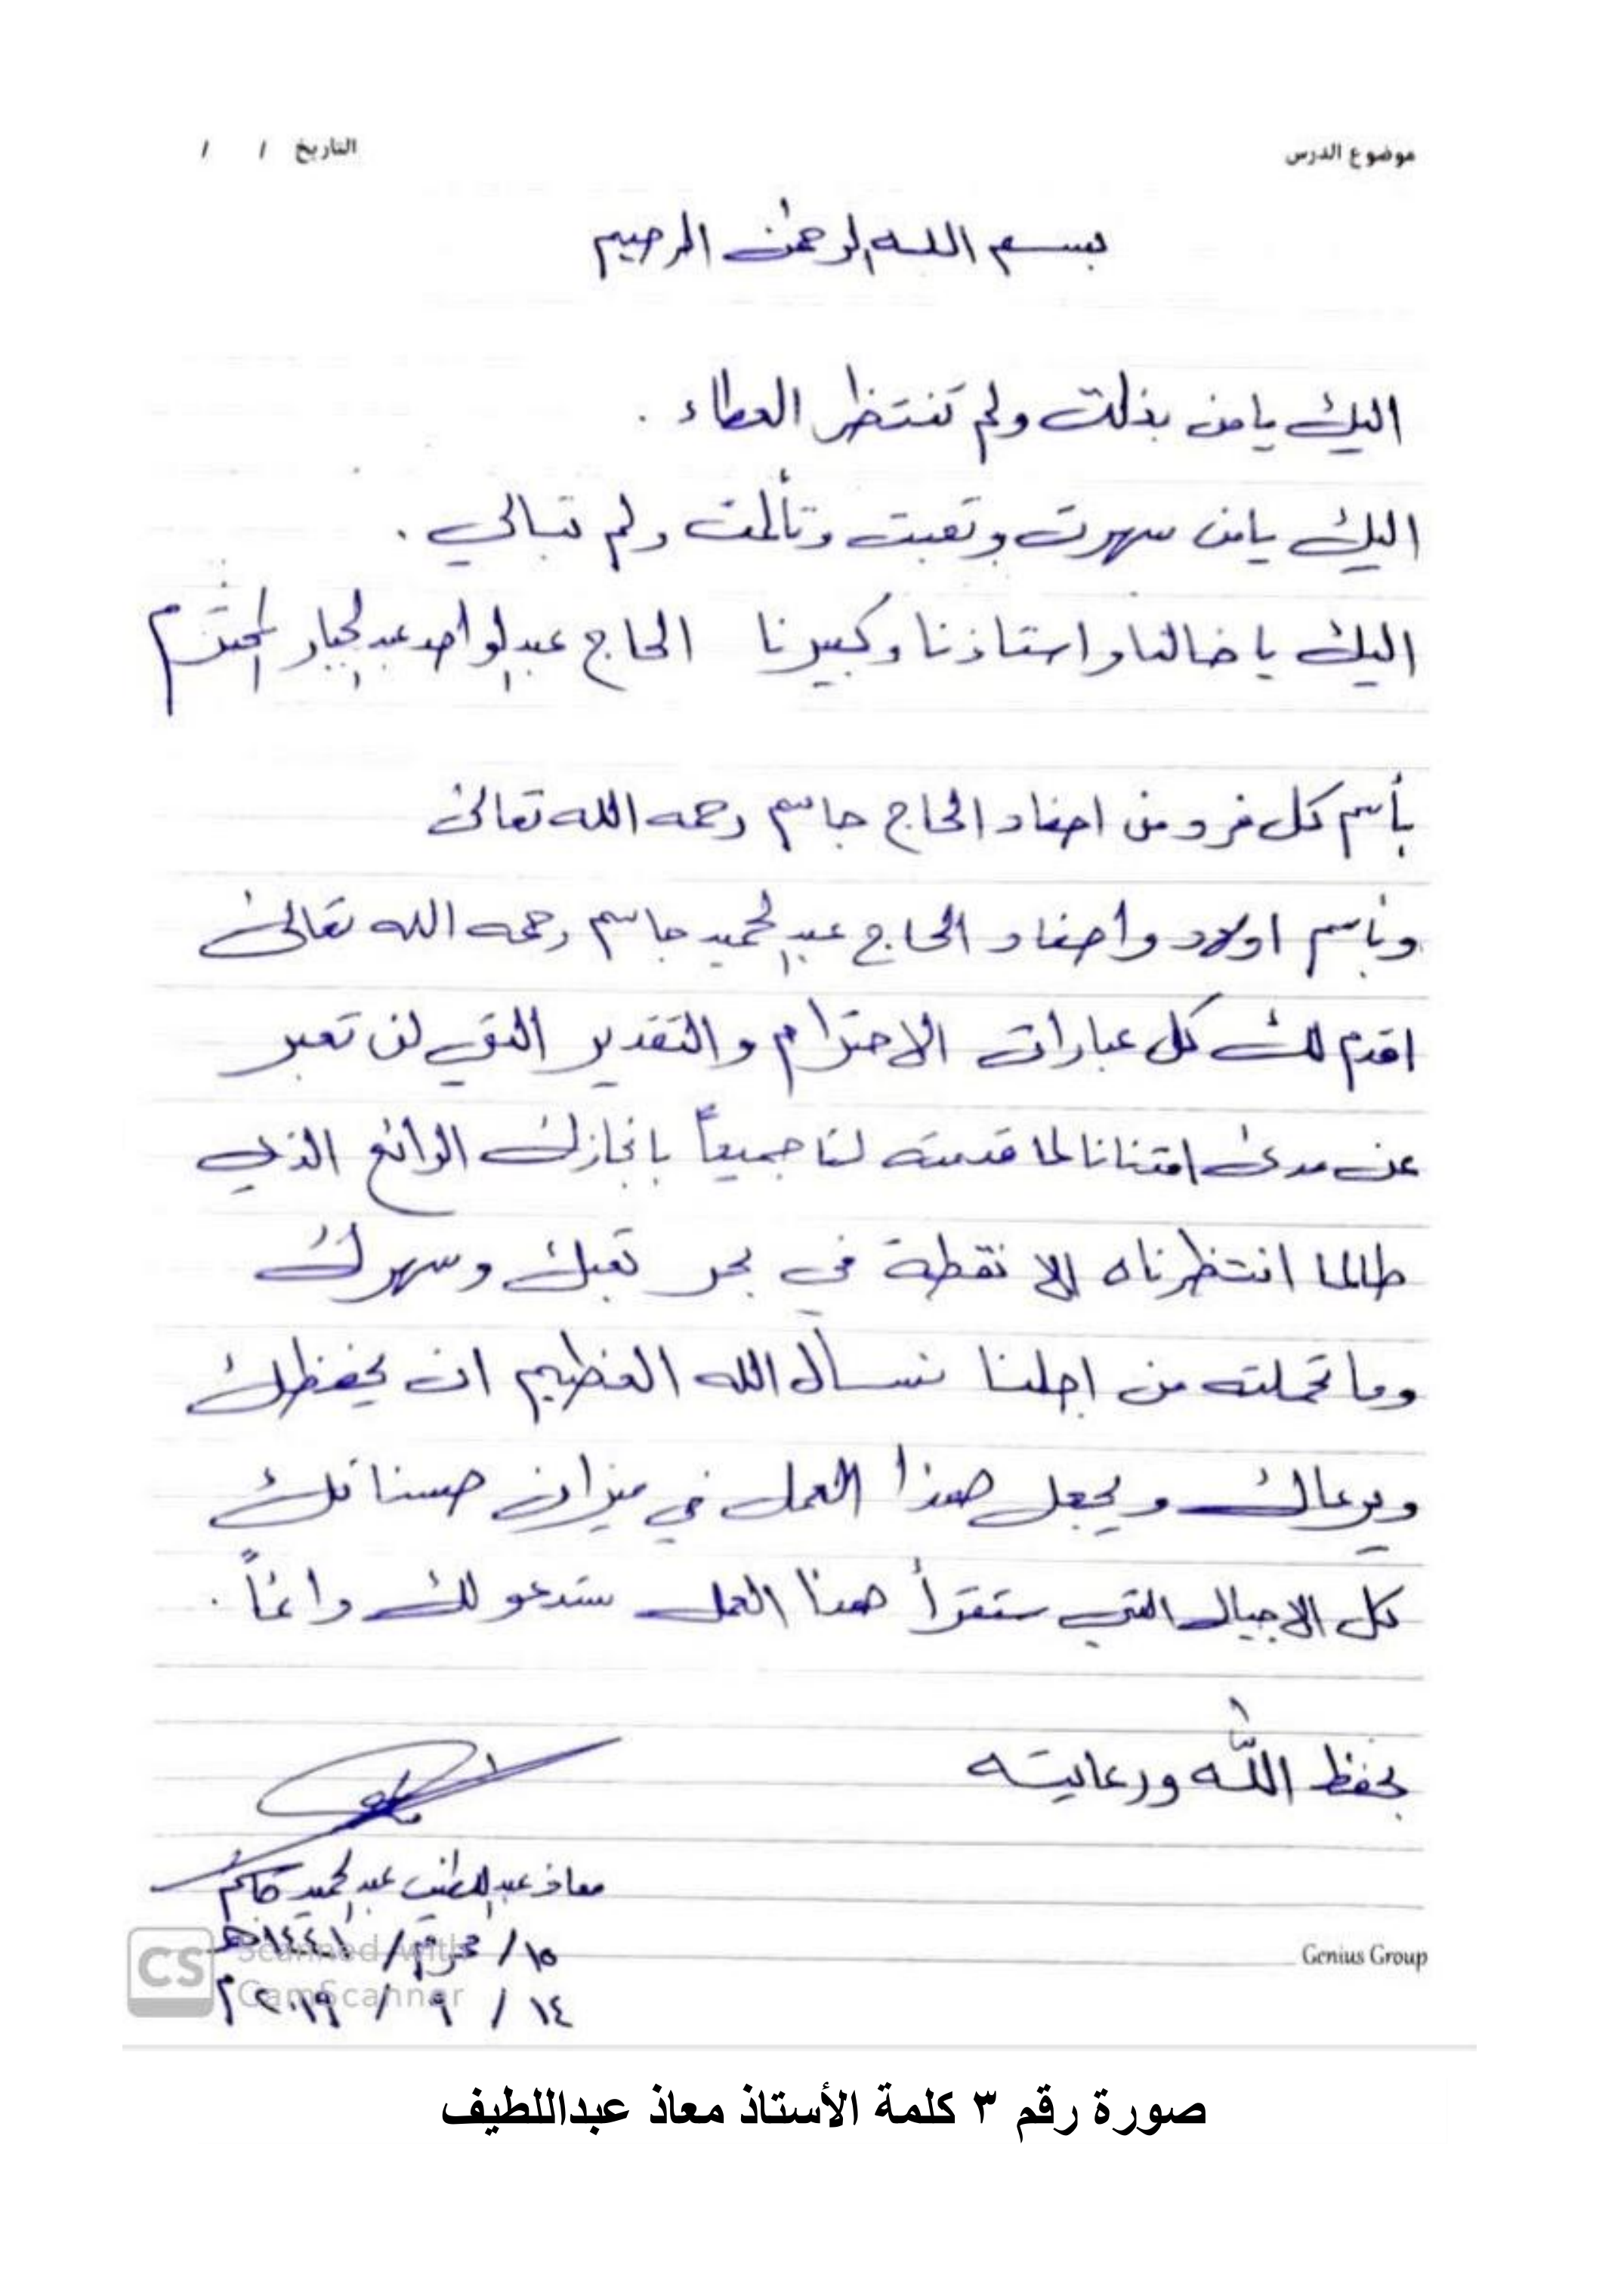 موضوع الدرس
التاريخ / /
بسم الله الرحمن الرحيم
اليك يامن بذلت ولم تنتظر العطاء .
اليك يامن سهرت وتعبت وتألمت ولم تبالي .
اليك يا خالنا واستاذنا وكبيرنا الحاج عبدالواحد عبدالجبار المحترم
بأسم كل فرد من احفاد الحاج جاسم رحمه الله تعالى
وبأسم اولاد واحفاد الحاج عبدالحميد جاسم رحمه الله تعالى
اقدم لك كل عبارات الاحترام والتقدير التي لن تعبر
عن مدى امتناننا لما قدمته لنا جميعاً بانجازك الرائع الذي
طالما انتظرناه إلا نقطة في بحر تعبك وسهرك
وما تحملته من اجلنا نسأل الله العظيم ان يحفظك
ويرعاك ويجعل هذا العمل في ميزان حسناتك
كل الاجيال التي ستقرأ هذا العمل ستدعو لك دائماً .
بحفظ الله ورعايته
معاذ عبداللطيف عبدالحميد جاسم
١٥/ محرم / ١٤٤١هـ
١٤ / ٩ / ٢٠١٩م
Genius Group
CS Scanned with
CamScanner
صورة رقم ٣ كلمة الأستاذ معاذ عبداللطيف